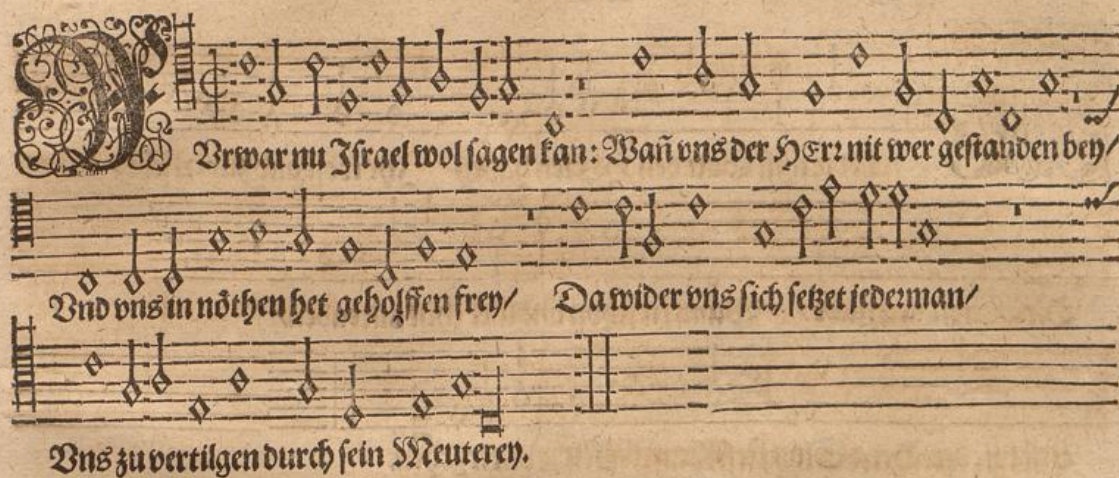 FVrwar nu Jſrael wol ſagen kan: Wañ vns der HErꝛ nit wer geſtanden bey/
Vnd vns in nöthen het geholffen frey/ Da wider vns ſich ſetzet jederman/
Vns zu vertilgen durch ſein Meuterey.